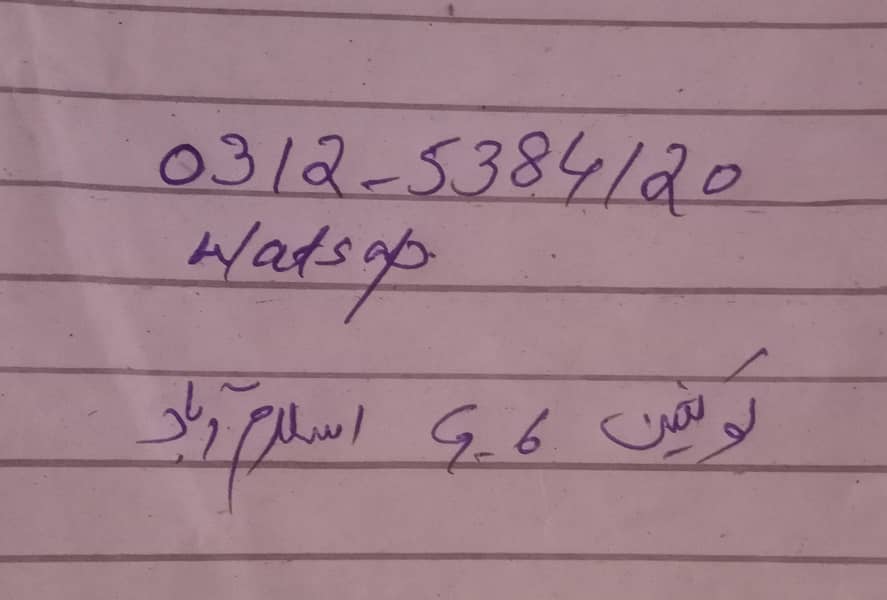 0312-5384120
Watsap
لوکیشن G-6 اسلام آباد